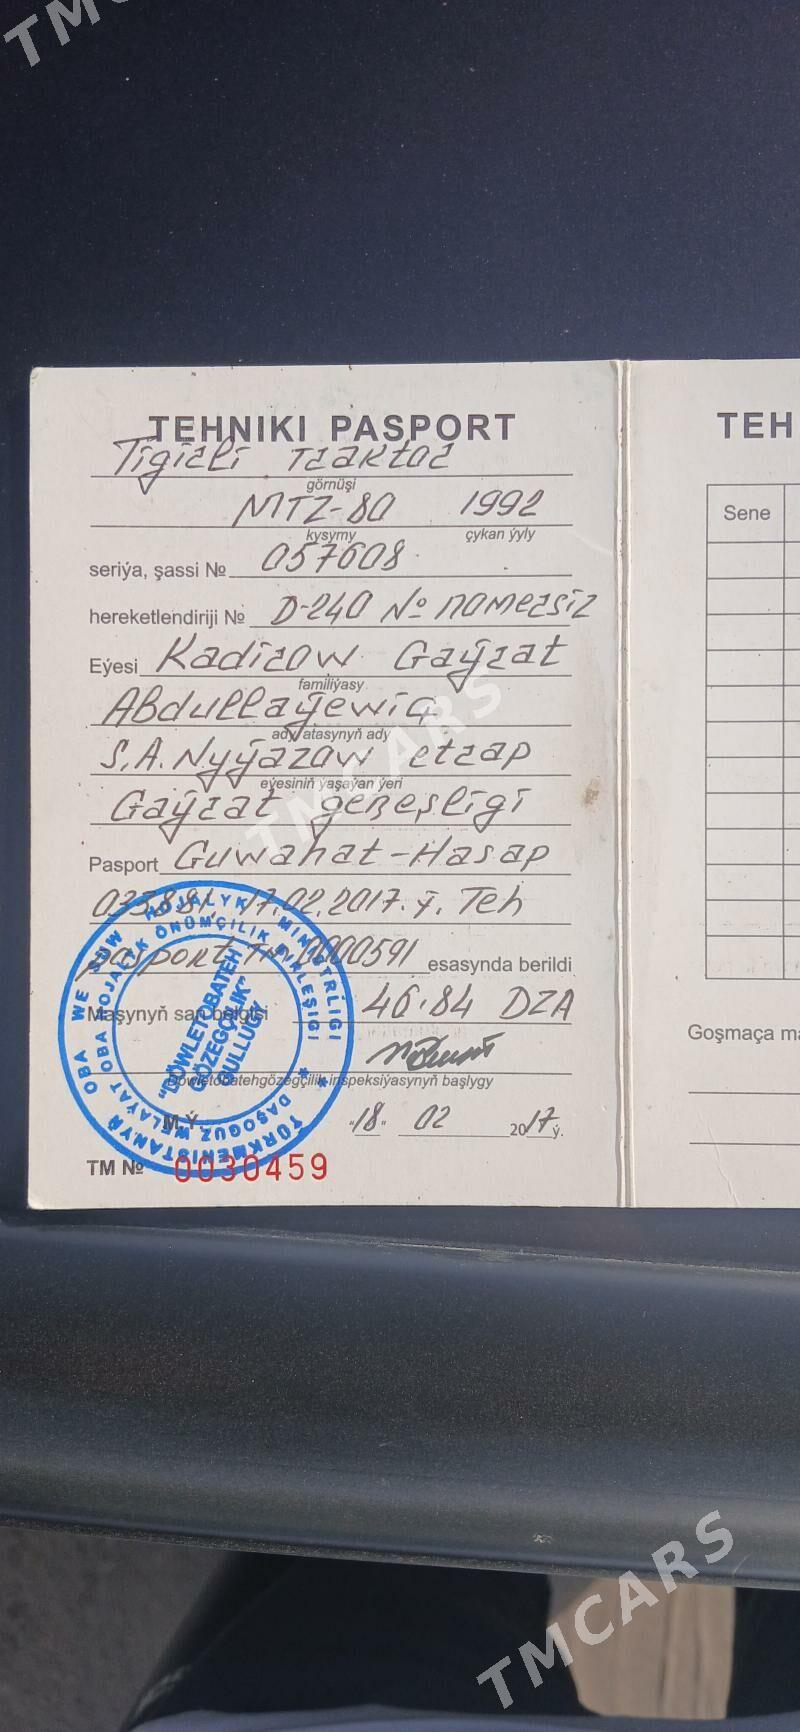 TMCARS
TEHNIKI PASPORT
Tigirli Traktor
görnüşi
MTZ-80 1992
kysymy çykan ýyly
seriýa, şassi № 057608
hereketlendiriji № D-240 № nomersiz
Eýesi Kadirow Gaýrat
familiýasy
Abdullaýewiç
ady, atasynyň ady
S.A.Nyýazow etrap
eýesiniň ýaşaýan ýeri
Gaýrat geňeşligi
Pasport Guwahat-Hasap
033881, 17.02.2017.ý. Teh
pasport TM 0000591 esasynda berildi
Maşynyň san belgisi 46.84 DZA
Döwletobatehgözegçilik inspeksiýasynyň başlygy
M.Ý. "18" 02 2017ý.
TM № 0030459
TÜRKMENISTANYŇ OBA WE SUW HOJALYK MINISTRLIGI
DAŞOGUZ WELAÝAT OBA HOJALYK ÖNÜMÇILIK BIRLEŞIGI
"DÖWLETOBATEH
GÖZEGÇILIK"
GULLUGY
TEH
Sene
Goşmaça ma
TMCARS
TMCARS